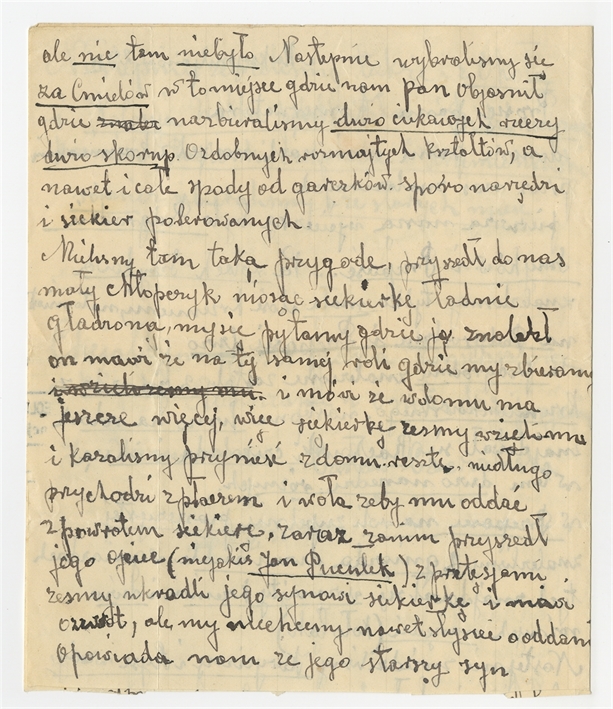 ale nic tam niebyło Następnie wybraliśmy się
za Cmielów w to miejsce gdzie nam pan objasnił
gdzie nazbieraliśmy dużo cikawych rzeczy
dużo skorup. Ozdobnych rozmajtych kształtów, a
nawet i całe spody od garczków. sporo narzędzi
i siekier polerowanych.
Mielismy tam taką przygode, przyszedł do nas
mały chłopczyk niosąc siekierkę ładnie
gładzoną, my się pytamy gdzie ją znalazł
on mawi że na tej samej roli gdzie my zbieramy
i mówi że w domu ma
jeszcze więcej, więc siekierke zesmy wzieli mu
i kazalismy przynieść z domu resztę. niedługo
przychodzi z płaczem i woła zeby mu oddac
z powrotem siekierę, zaraz zanim przyszedł
jego ojciec (niejakiś Jan ) z pretęsjami
zesmy ukradli jego synowi siekierkę i mawi
ale my niechcemy nawet słysieć o oddani
Opowiada nam ze jego starszy syn